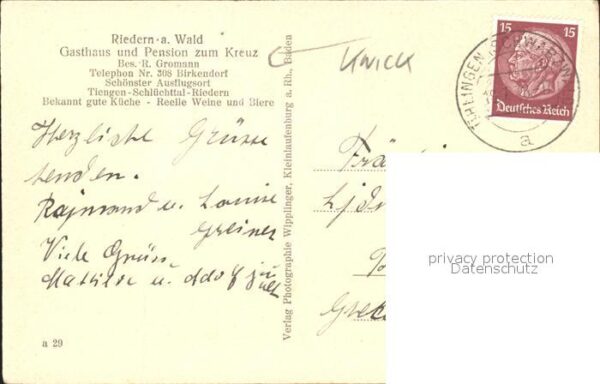 Riedern a. Wald
Gasthaus und Pension zum Kreuz
Bes. R. Gromann
Telephon Nr. 308 Birkendorf
Schönster Ausflugsort
Tiengen-Schlüchttal-Riedern
Bekannt gute Küche - Reelle Weine und Biere
Herzliche Grüsse
senden.
Raimund u. Louise
Greiner
Viele Grüsse
Mathilde u. Adolf
a 29
Verlag Photographie Wipplinger, Kleinlaufenburg a. Rh., Baden
15 15
Deutsches Reich
a
privacy protection
Datenschutz